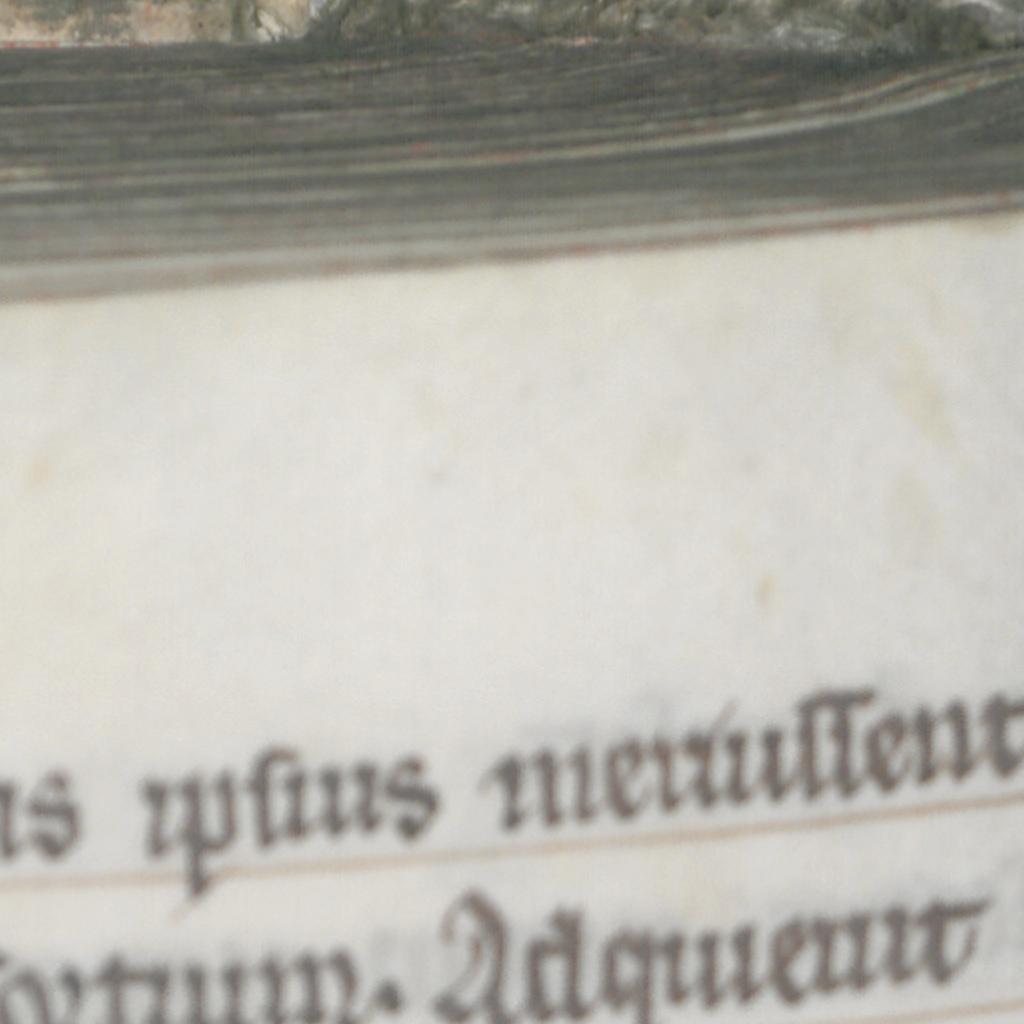 us ipsius meruissent
ortum. Adquieuit